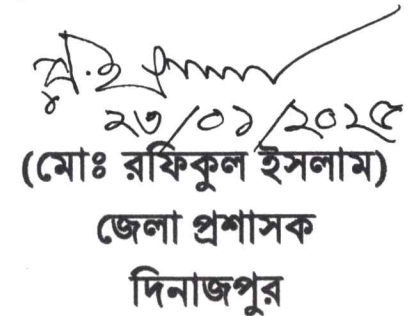 ২৩/০১/২০২৫
(মোঃ রফিকুল ইসলাম)
জেলা প্রশাসক
দিনাজপুর